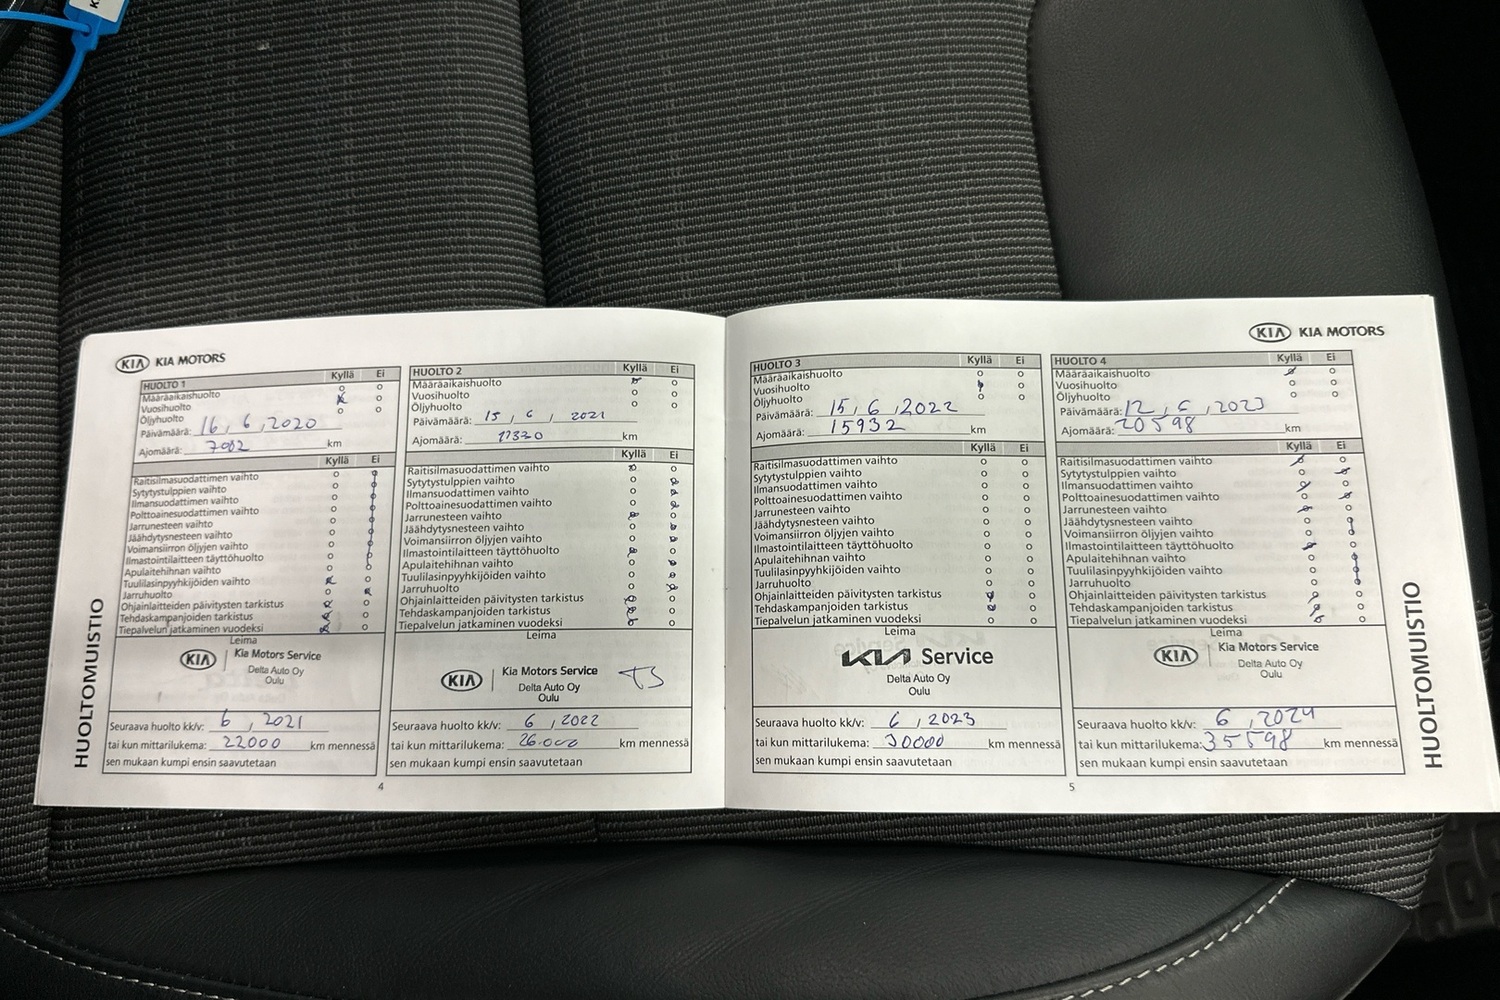 KIA KIA MOTORS
HUOLTO 1 Kyllä Ei
Määräaikaishuolto
Vuosihuolto
Öljyhuolto
Päivämäärä: 16, 6, 2020
Ajomäärä: 7082 km
Kyllä Ei
Raitisilmasuodattimen vaihto
Sytytystulppien vaihto
Ilmansuodattimen vaihto
Polttoainesuodattimen vaihto
Jarrunesteen vaihto
Jäähdytysnesteen vaihto
Voimansiirron öljyjen vaihto
Ilmastointilaitteen täyttöhuolto
Apulaitehihnan vaihto
Tuulilasinpyyhkijöiden vaihto
Jarruhuolto
Ohjainlaitteiden päivitysten tarkistus
Tehdaskampanjoiden tarkistus
Tiepalvelun jatkaminen vuodeksi
Leima
KIA Kia Motors Service
Delta Auto Oy
Oulu
Seuraava huolto kk/v: 6, 2021
tai kun mittarilukema: 22000 km mennessä
sen mukaan kumpi ensin saavutetaan
HUOLTOMUISTIO
HUOLTO 2 Kyllä Ei
Määräaikaishuolto
Vuosihuolto
Öljyhuolto
Päivämäärä: 15, 6, 2021
Ajomäärä: 11320 km
Kyllä Ei
Raitisilmasuodattimen vaihto
Sytytystulppien vaihto
Ilmansuodattimen vaihto
Polttoainesuodattimen vaihto
Jarrunesteen vaihto
Jäähdytysnesteen vaihto
Voimansiirron öljyjen vaihto
Ilmastointilaitteen täyttöhuolto
Apulaitehihnan vaihto
Tuulilasinpyyhkijöiden vaihto
Jarruhuolto
Ohjainlaitteiden päivitysten tarkistus
Tehdaskampanjoiden tarkistus
Tiepalvelun jatkaminen vuodeksi
Leima
KIA Kia Motors Service TS
Delta Auto Oy
Oulu
Seuraava huolto kk/v: 6, 2022
tai kun mittarilukema: 26.000 km mennessä
sen mukaan kumpi ensin saavutetaan
4
KIA KIA MOTORS
HUOLTO 3 Kyllä Ei
Määräaikaishuolto
Vuosihuolto
Öljyhuolto
Päivämäärä: 15, 6, 2022
Ajomäärä: 15932 km
Kyllä Ei
Raitisilmasuodattimen vaihto
Sytytystulppien vaihto
Ilmansuodattimen vaihto
Polttoainesuodattimen vaihto
Jarrunesteen vaihto
Jäähdytysnesteen vaihto
Voimansiirron öljyjen vaihto
Ilmastointilaitteen täyttöhuolto
Apulaitehihnan vaihto
Tuulilasinpyyhkijöiden vaihto
Jarruhuolto
Ohjainlaitteiden päivitysten tarkistus
Tehdaskampanjoiden tarkistus
Tiepalvelun jatkaminen vuodeksi
Leima
KIA Service
Delta Auto Oy
Oulu
Seuraava huolto kk/v: 6, 2023
tai kun mittarilukema: 30000 km mennessä
sen mukaan kumpi ensin saavutetaan
HUOLTO 4 Kyllä Ei
Määräaikaishuolto
Vuosihuolto
Öljyhuolto
Päivämäärä: 12, 6, 2023
Ajomäärä: 20598 km
Kyllä Ei
Raitisilmasuodattimen vaihto
Sytytystulppien vaihto
Ilmansuodattimen vaihto
Polttoainesuodattimen vaihto
Jarrunesteen vaihto
Jäähdytysnesteen vaihto
Voimansiirron öljyjen vaihto
Ilmastointilaitteen täyttöhuolto
Apulaitehihnan vaihto
Tuulilasinpyyhkijöiden vaihto
Jarruhuolto
Ohjainlaitteiden päivitysten tarkistus
Tehdaskampanjoiden tarkistus
Tiepalvelun jatkaminen vuodeksi
Leima
KIA Kia Motors Service
Delta Auto Oy
Oulu
Seuraava huolto kk/v: 6, 2024
tai kun mittarilukema: 35598 km mennessä
sen mukaan kumpi ensin saavutetaan
5
HUOLTOMUISTIO